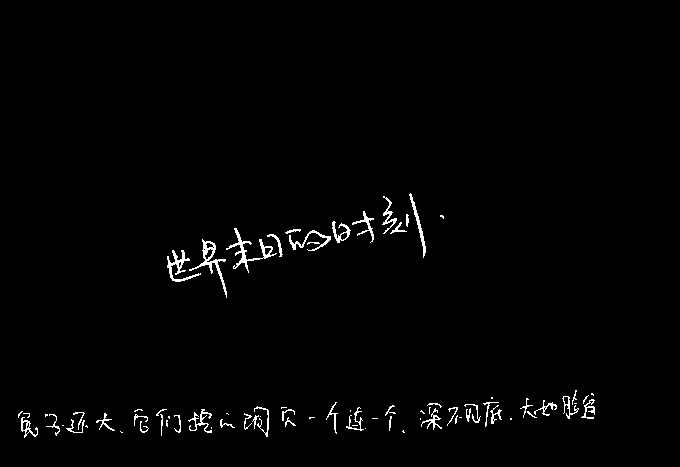 世界末日的时刻.
兔子还大、它们挖的洞穴一个连一个、深不见底.大地脸